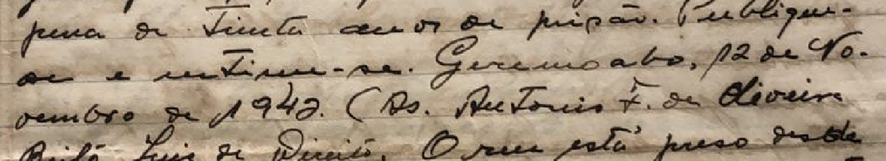 pena de trinta anos de prisão. Publique-
se e intime-se. Geremoabo, 12 de No-
vembro de 1942. (As. Antonio F. de Oliveira
Brito Juiz de Direito. O reu está preso desde